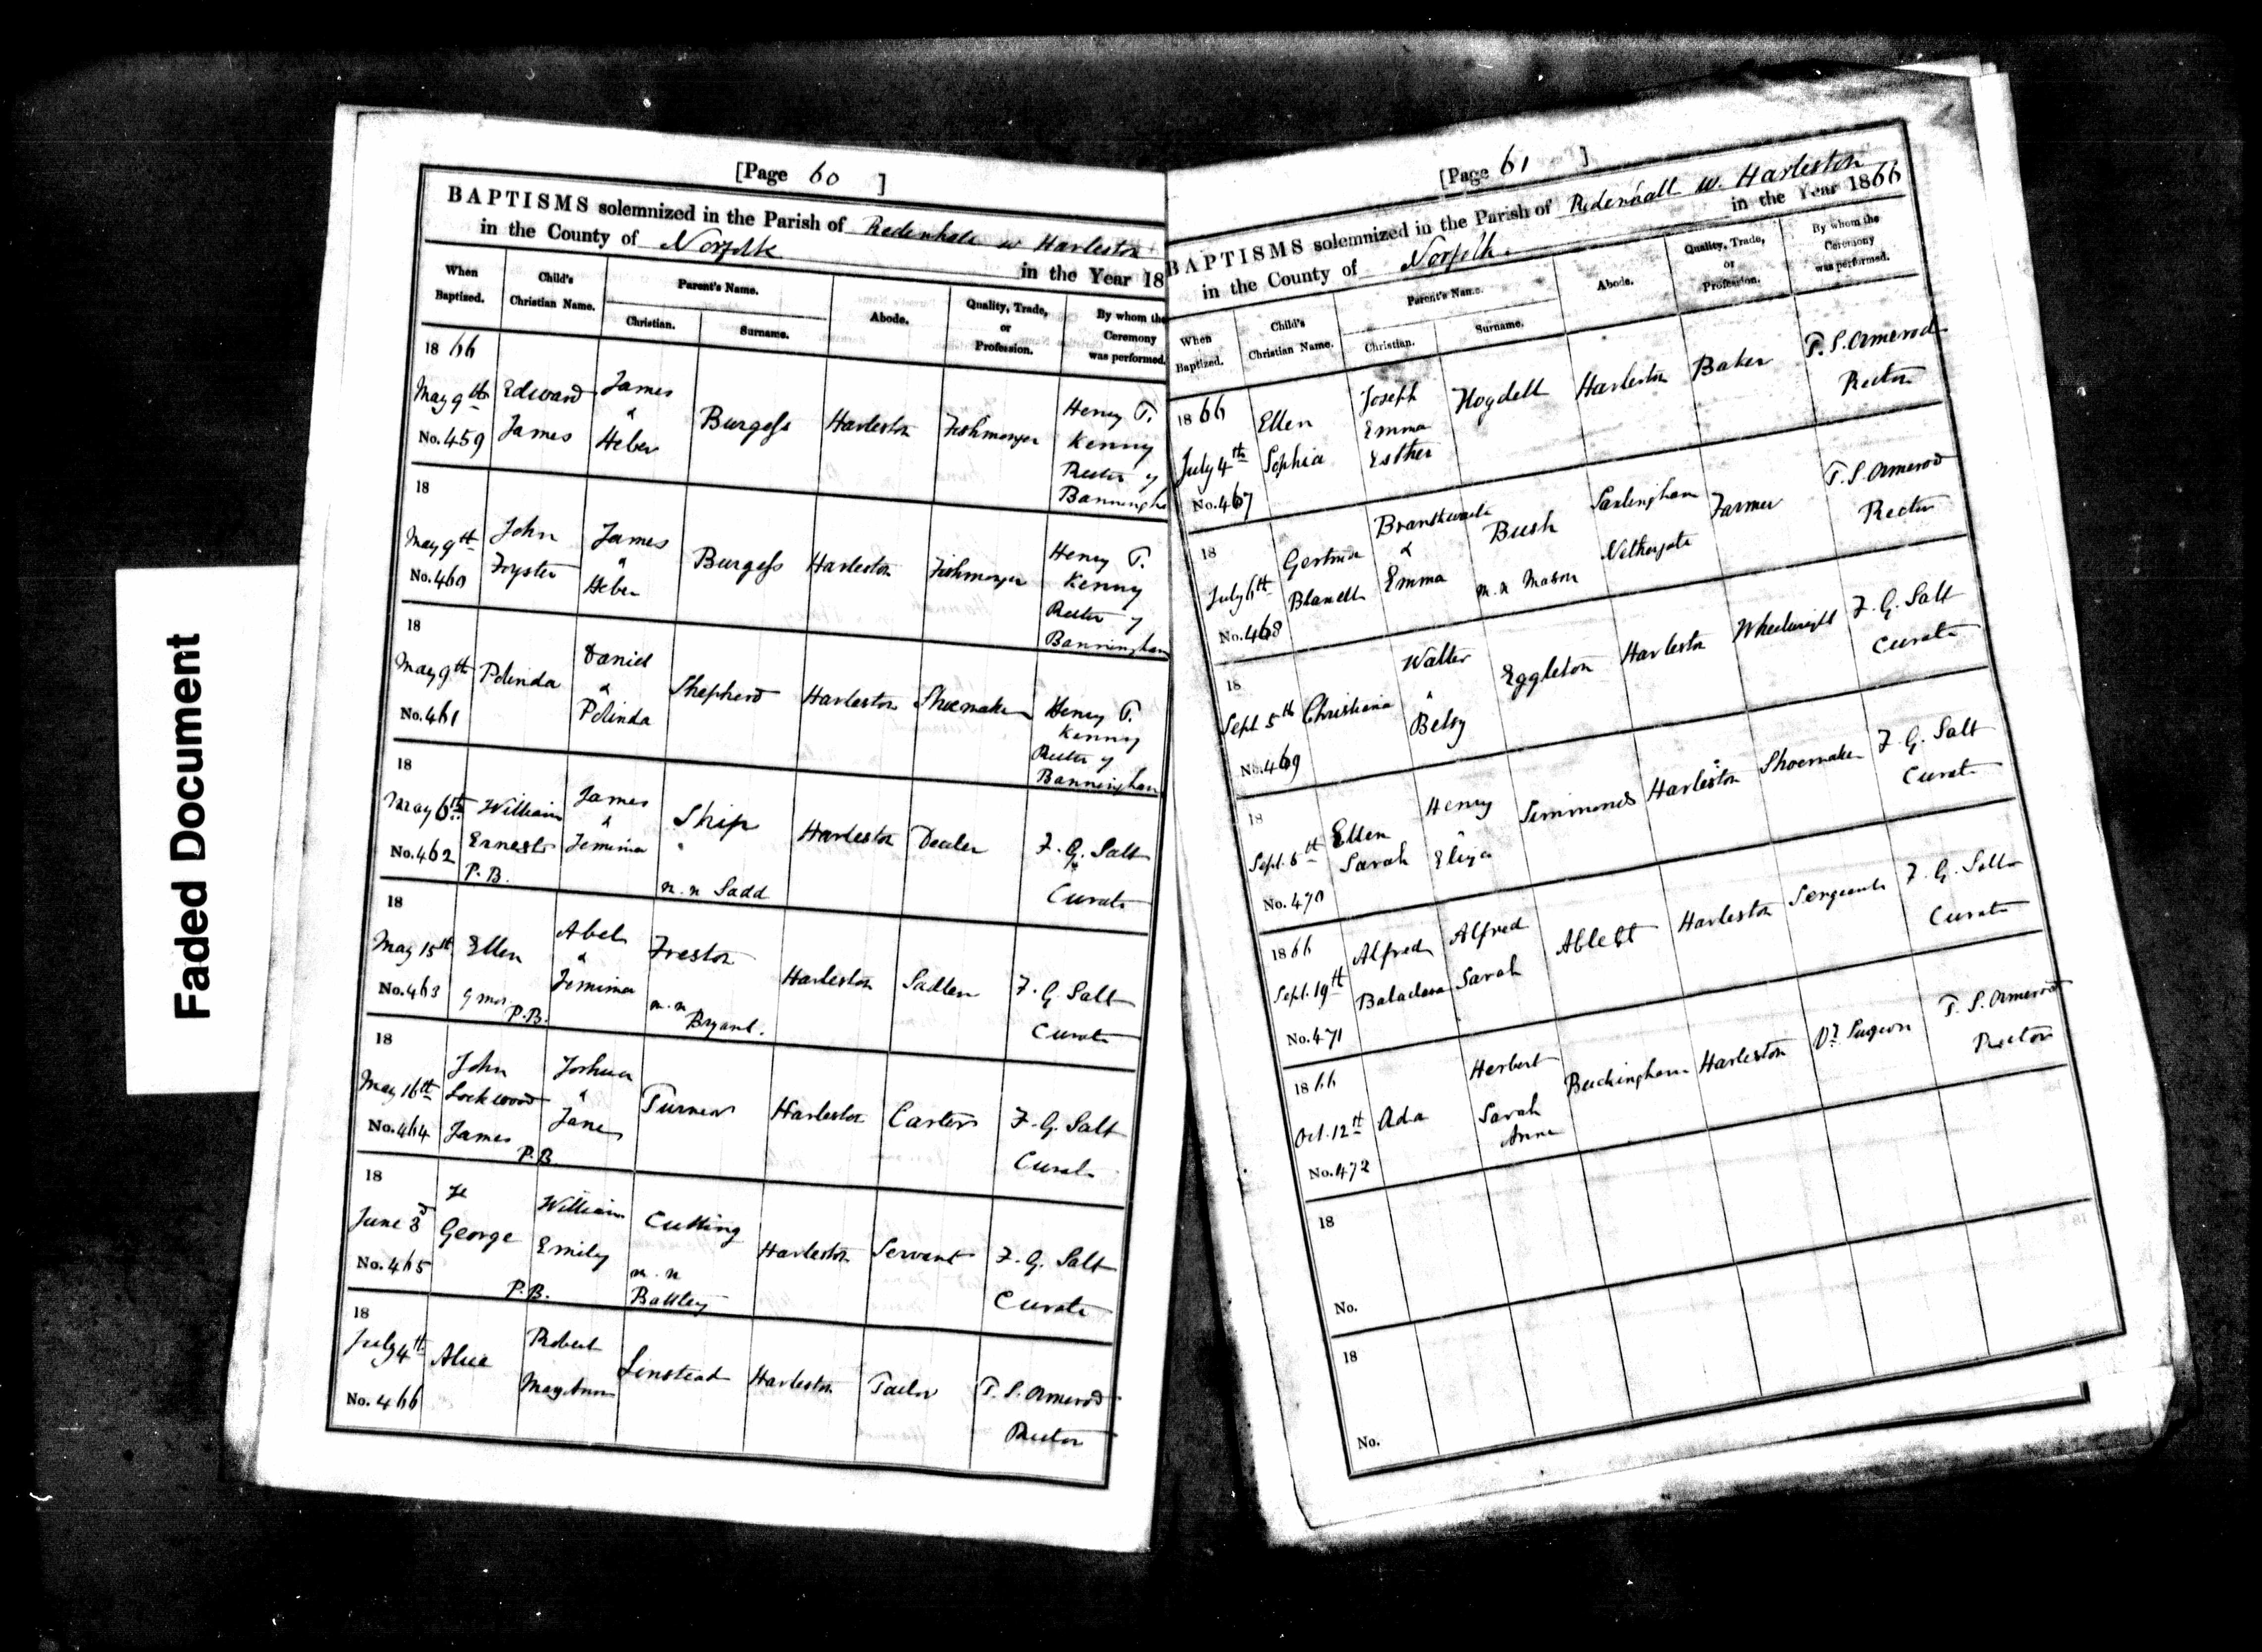 Faded Document
[Page 60 ]
BAPTISMS solemnized in the Parish of Redenhall w Harleston
in the County of Norfolk in the Year 18
When Baptized.
Child's Christian Name.
Parent's Name.
Christian.
Surname.
Abode.
Quality, Trade, or Profession.
By whom the Ceremony was performed.
1866
May 9th Edward James & Burgess Harleston Fishmonger Henry T. Kenny
No. 459 James Heber Rector of Banningh
18
May 9th John James & Burgess Harleston Fishmonger Henry T. Kenny
No. 460 Fryster Heber Rector of Banningham
18
May 9th Polinda Daniel & Shepherd Harleston Shoemaker Henry T. Kenny
No. 461 Polinda Rector of Banningham
18
May 6th William James & Ship Harleston Dealer F. G. Salt
No. 462 Ernest Jemima n. n Sadd Curate
P. B.
18
May 15th Ellen Abel & Freston Harleston Sadler F. G. Salt
No. 463 9 mos. P.B. Jemima n. n Bryant. Curate
18
May 16th John Lockwood Joshua & Turner Harleston Carter F. G. Salt
No. 464 James Jane Curate
P.B.
18
June 3d George William Cutting Harleston Servant F. G. Salt
No. 465 Emily n. n Battley Curate
P.B.
18
July 4th Alice Robert Linstead Harleston Tailor T. S. Ormerod
No. 466 Mary Ann Rector
[Page 61 ]
BAPTISMS solemnized in the Parish of Redenhall w. Harleston
in the County of Norfolk. in the Year 1866
When Baptized.
Child's Christian Name.
Parent's Name.
Christian.
Surname.
Abode.
Quality, Trade, or Profession.
By whom the Ceremony was performed.
1866
July 4th Ellen Joseph Hogdell Harleston Baker T. S. Ormerod
No. 467 Sophia Emma Esther Rector
18
July 6th & Bush Saxlingham Farmer T. S. Ormerod
No. 468 Emma n. n Mason Nethergate Rector
18
Sept 5th Christiana Walter & Eggleton Harleston Wheelwright F. G. Salt
No. 469 Betsy Curate
18
Sept. 6th Ellen Henry & Simmonds Harleston Shoemaker F. G. Salt
No. 470 Sarah Eliza Curate
1866
Sept. 19th Alfred Alfred Ablett Harleston Sergeant F. G. Salt
No. 471 Balaclava Sarah Curate
1866
Oct. 12th Ada Herbert Buckingham Harleston Vy Surgeon T. S. Ormerod
No. 472 Sarah Anne Rector
18
No.
18
No.